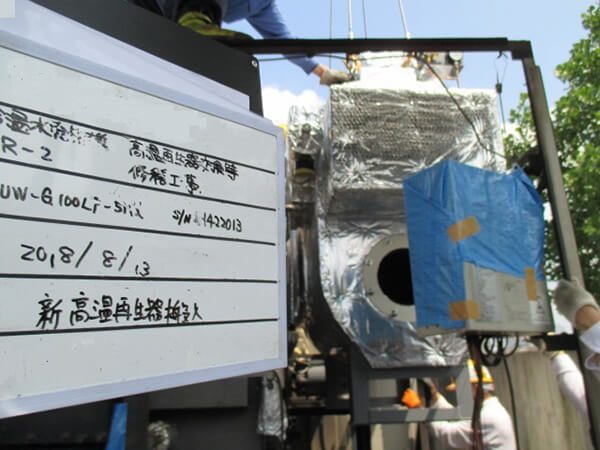 温水発生機 高温再生器交換等
R-2 修繕工事
UW-G100L S/N 1422013
2018/8/13
新高温再生器搬入